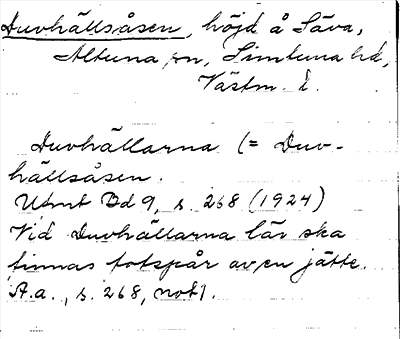 Duvhällsåsen, höjd å Säva,
Altuna sn, Simtuna hd,
Västm. l.
Duvhällarna (= Duv-
hällsåsen.
Utmt Bd 9, s. 268 (1924)
Vid Duvhällarna lär ska
finnas fotspår av en jätte.
A.a., s. 268, not 1.